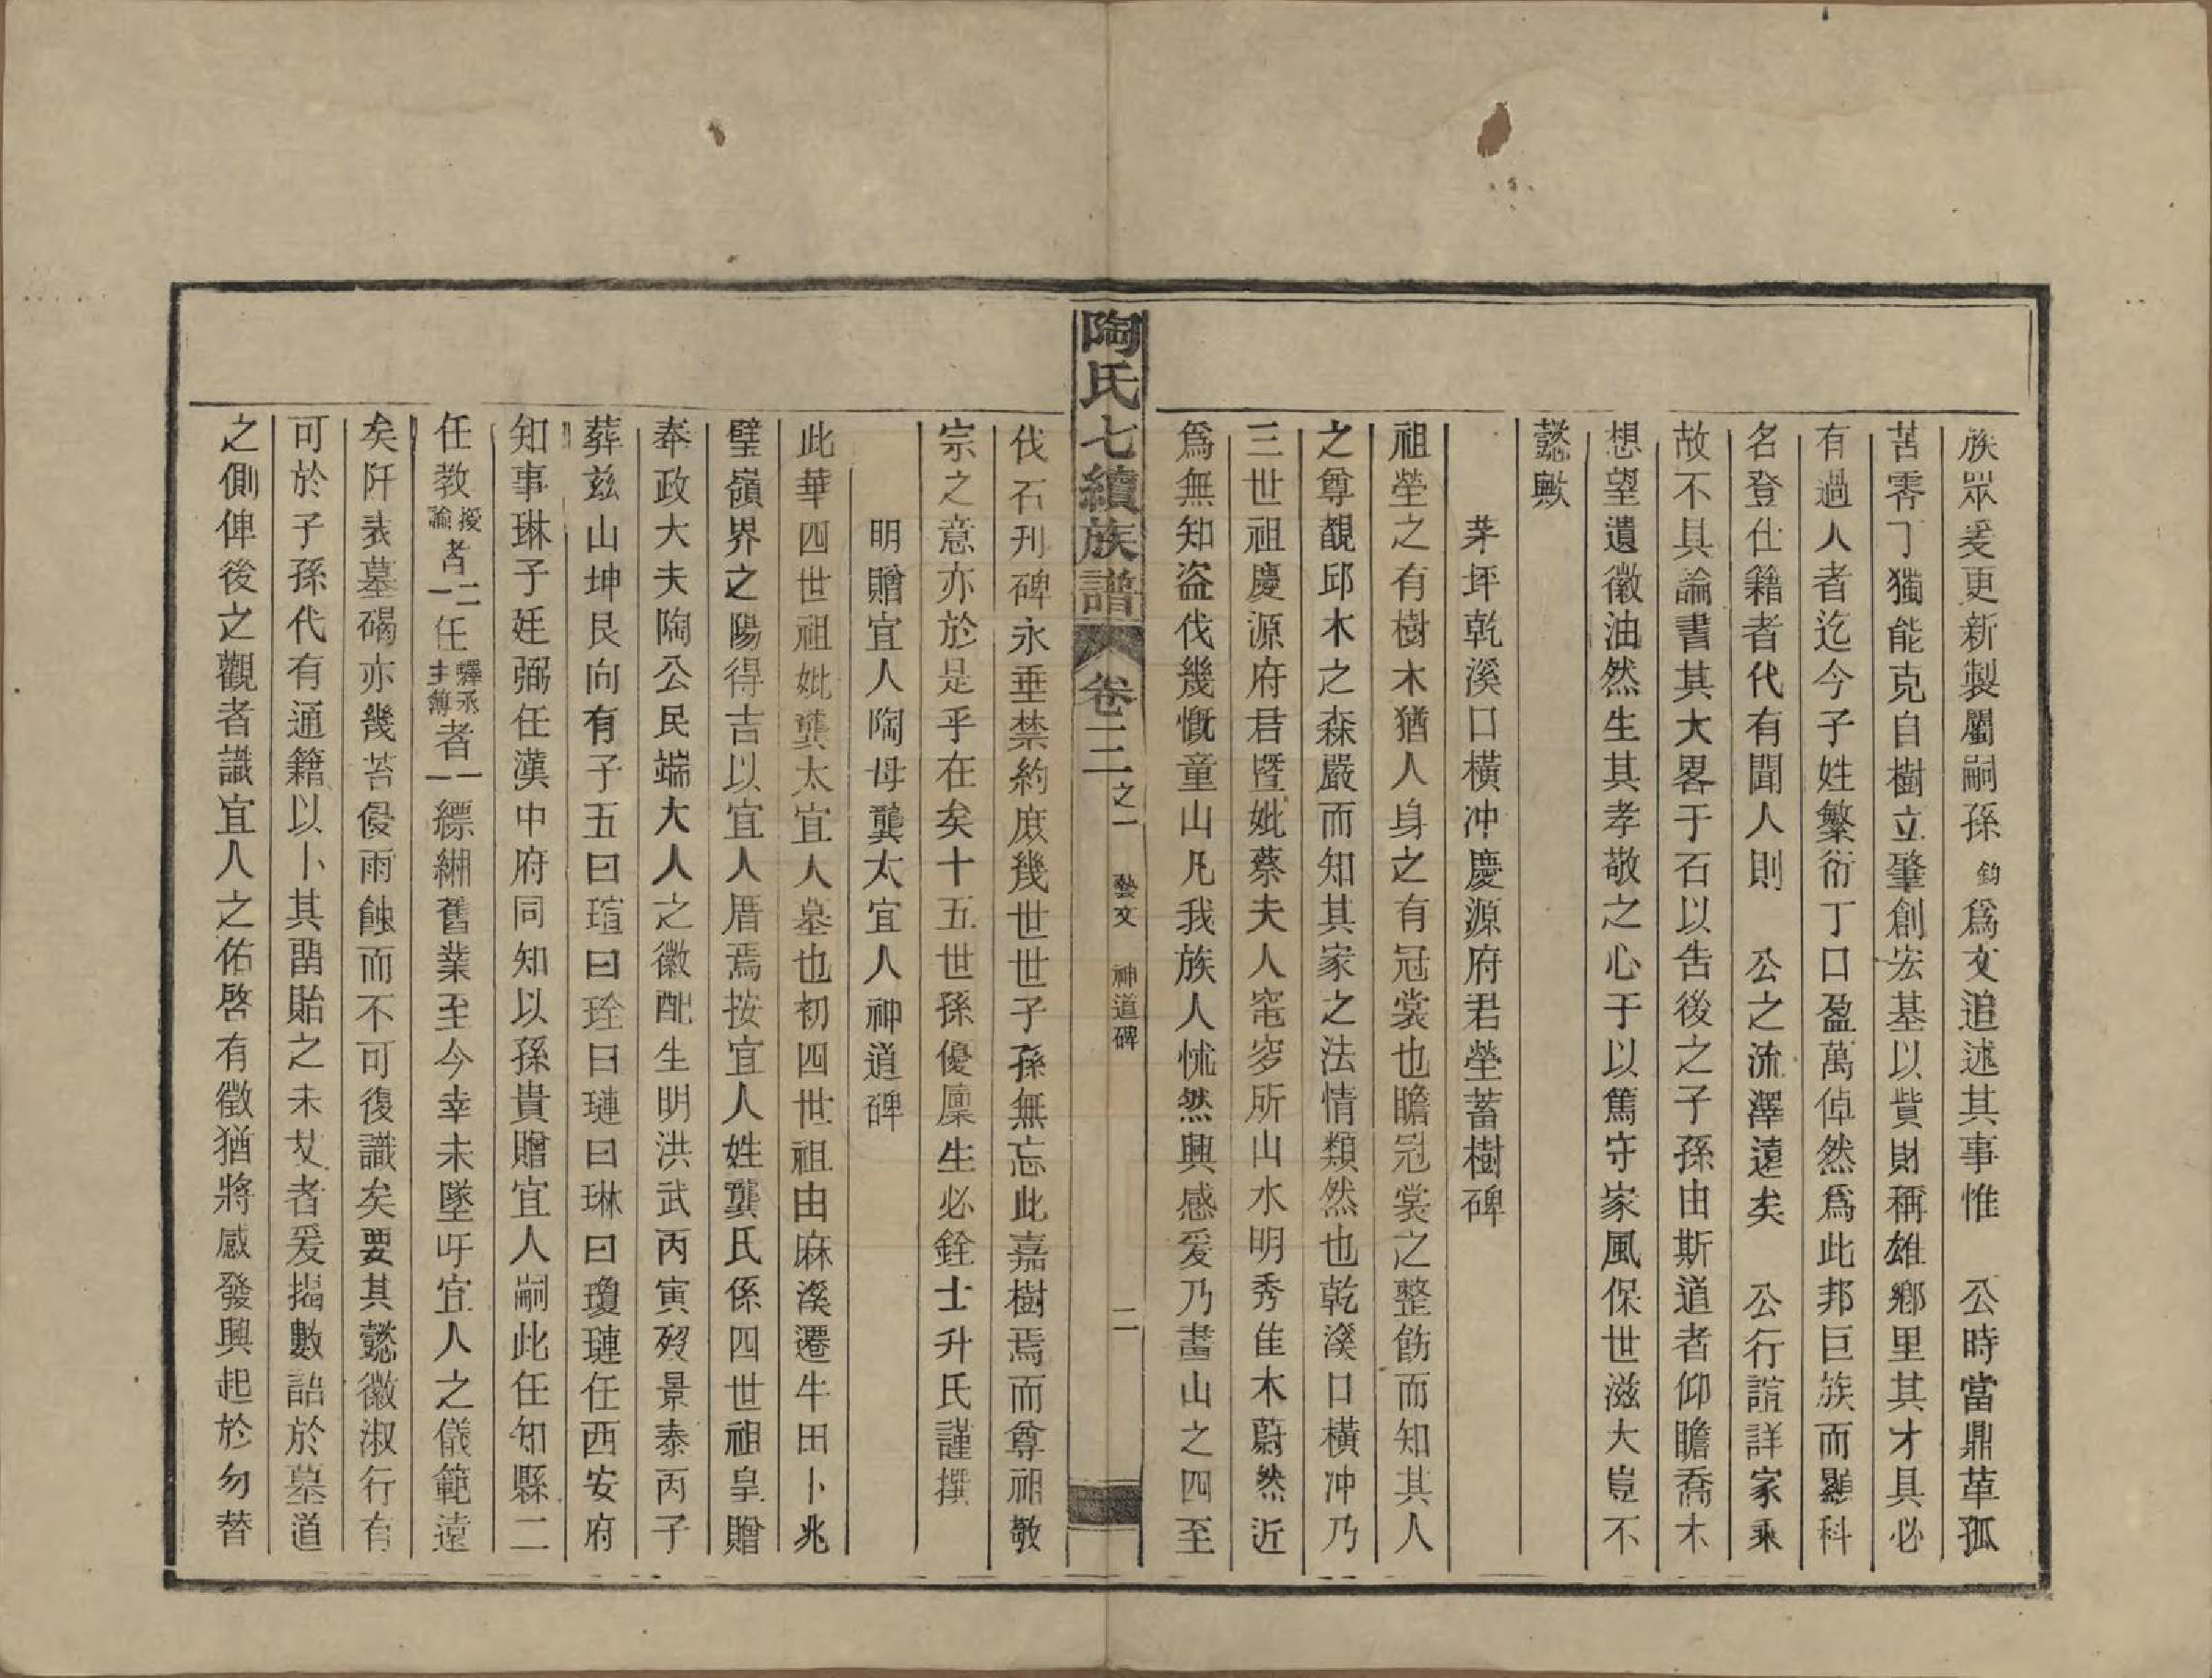 族眾爰更新製屬嗣孫鈞爲文追述其事惟　公時當鼎革孤
苦零丁獨能克自樹立肇創宏基以貲財稱雄鄉里其才具必
有過人者迄今子姓繁衍丁口盈萬倬然爲此邦巨族而顯科
名登仕籍者代有聞人則　公之流澤遠矣　公行誼詳家乘
故不具論書其大畧于石以告後之子孫由斯道者仰瞻喬木
想望遺徽油然生其孝敬之心于以篤守家風保世滋大豈不
懿歟
茅坪乾溪口橫冲慶源府君塋蓄樹碑
祖塋之有樹木猶人身之有冠裳也瞻冠裳之整飭而知其人
之尊覩邱木之森嚴而知其家之法情類然也乾溪口橫冲乃
三世祖慶源府君暨妣蔡夫人窀穸所山水明秀佳木蔚然近
爲無知盜伐幾慨童山凡我族人怵然興感爰乃畫山之四至
陶氏七續族譜　卷二之一　藝文　神道碑　二
伐石刊碑永垂禁約庶幾世世子孫無忘此嘉樹焉而尊祖敬
宗之意亦於是乎在矣十五世孫優廩生必銓士升氏謹撰
明贈宜人陶母龔太宜人神道碑
此華四世祖妣龔太宜人墓也初四世祖由麻溪遷牛田卜兆
璧嶺界之陽得吉以宜人厝焉按宜人姓龔氏係四世祖皇贈
奉政大夫陶公民端大人之徽配生明洪武丙寅歿景泰丙子
葬茲山坤艮向有子五曰瑄曰琻曰璉曰琳曰瓊璉任西安府
知事琳子廷弼任漢中府同知以孫貴贈宜人嗣此任知縣二
任教授諭者二一任驛丞主簿者一一縹緗舊業至今幸未墜吁宜人之儀範遠
矣阡表墓碣亦幾苔侵雨蝕而不可復識矣要其懿徽淑行有
可於子孫代有通籍以卜其閫貽之未艾者爰揭數語於墓道
之側俾後之觀者識宜人之佑啓有徵猶將感發興起於勿替